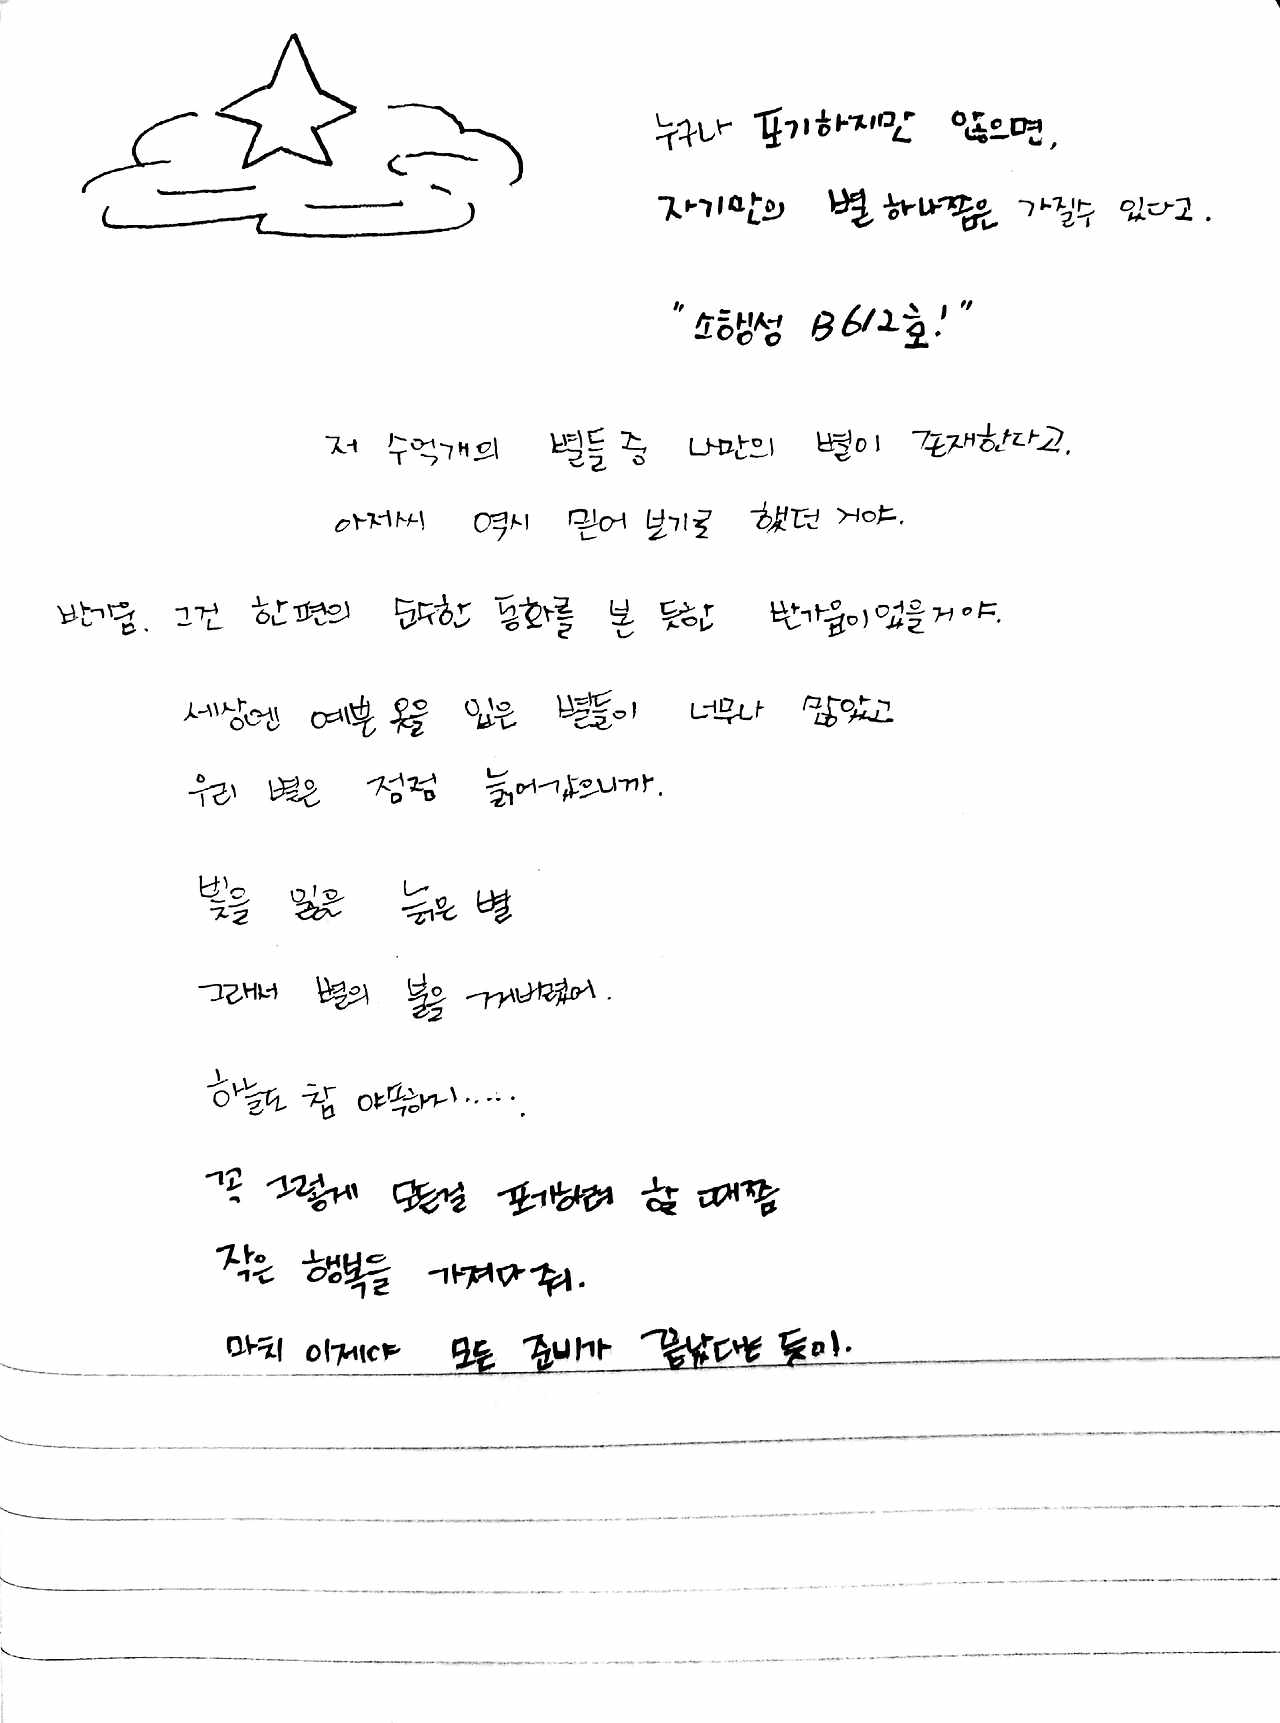 누구나 포기하지만 않으면,
자기만의 별 하나쯤은 가질수 있다고.
"소행성 B612호!"
저 수억개의 별들 중 나만의 별이 존재한다고.
아저씨 역시 믿어 보기로 했던 거야.
반가움. 그건 한편의 순수한 동화를 본 듯한 반가움이었을거야.
세상엔 예쁜 옷을 입은 별들이 너무나 많았고
우리 별은 점점 늙어갔으니까.
빛을 잃은 늙은 별
그래서 별의 불을 꺼버렸어.
하늘도 참 야속하지.....
꼭 그렇게 모든걸 포기하려 할 때쯤
작은 행복들 가져다 줘.
마치 이제야 모든 준비가 끝났다는 듯이.